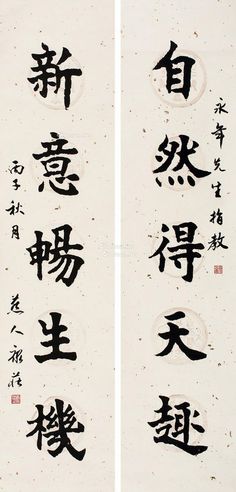 自然得天趣
永年先生指教
新意暢生機
丙子秋月